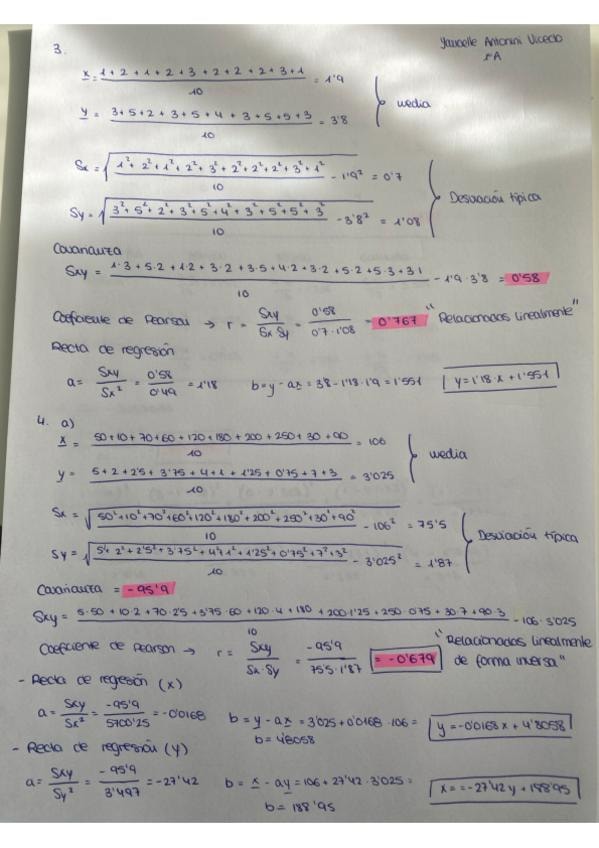 3.
Yaucelle Antonini Vicedo
1ºA
x = 1+2+1+2+3+2+2+2+3+1 / 10 = 1'9
media
y = 3+5+2+3+5+4+3+5+5+3 / 10 = 3'8
Sx = √(1²+2²+1²+2²+3²+2²+2²+2²+3²+1² / 10 - 1'9²) = 0'7
Desviación típica
Sy = √(3²+5²+2²+3²+5²+4²+3²+5²+5²+3² / 10 - 3'8²) = 1'08
Covarianza
Sxy = 1·3+5·2+1·2+3·2+3·5+4·2+3·2+5·2+5·3+3·1 / 10 - 1'9·3'8 = 0'58
Coeficiente de Pearson → r = Sxy / Sx Sy = 0'58 / 0'7·1'08 = 0'767 "Relacionados linealmente"
Recta de regresión
a = Sxy / Sx² = 0'58 / 0'49 = 1'18 b = y - ax = 3'8 - 1'18·1'9 = 1'551 y = 1'18·x + 1'551
4. a)
x = 50+10+70+60+120+180+200+250+30+90 / 10 = 106
media
y = 5+2+2'5+3'75+4+1+1'25+0'75+7+3 / 10 = 3'025
Sx = √(50²+10²+70²+60²+120²+180²+200²+250²+30²+90² / 10 - 106²) = 75'5
Desviación típica
Sy = √(5²+2²+2'5²+3'75²+4²+1²+1'25²+0'75²+7²+3² / 10 - 3'025²) = 1'87
Covarianza = -95'9
Sxy = 5·50+10·2+70·2'5+3'75·60+120·4+180+200·1'25+250·0'75+30·7+90·3 / 10 - 106·3'025
Coeficiente de Pearson → r = Sxy / Sx·Sy = -95'9 / 75'5·1'87 = -0'679 "Relacionados linealmente
de forma inversa"
- Recta de regresión (x)
a = Sxy / Sx² = -95'9 / 5700'25 = -0'0168 b = y - ax = 3'025 + 0'0168·106 = y = -0'0168x + 4'8058
b = 4'8058
- Recta de regresión (y)
a = Sxy / Sy² = -95'9 / 3'497 = -27'42 b = x - ay = 106 + 27'42·3'025 = x = -27'42y + 188'95
b = 188'95